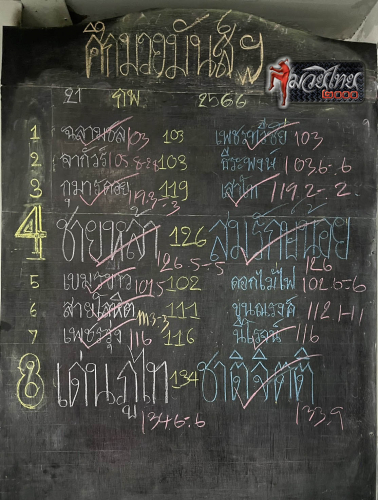 ศึกมวยมันส์ๆ
มวยไทย
๒๐๐๐
21 กพ 2566
1 ฉลามชล 103 103 เพชรศรีชัย 103
2 จากัวร์ 103 ธีระพงษ์ 103.6-.6
3 กุมารดอย 119.3-.3 119 เสกไท 119.2-.2
4 ชายหล้า 126 สมรักษ์น้อย
126.5-.5 126
5 เขมรขาว 101.5 102 ดอกไม้ไฟ 102.6-.6
6 สายโลหิต 111.3-.3 111 ขุนณรงค์ 112.1-.11
7 เพชรรุ่ง 116 นิโรจน์ 116
8 เด่นภูไท 134 ชาติจิตติ
134.6-.6 133.9